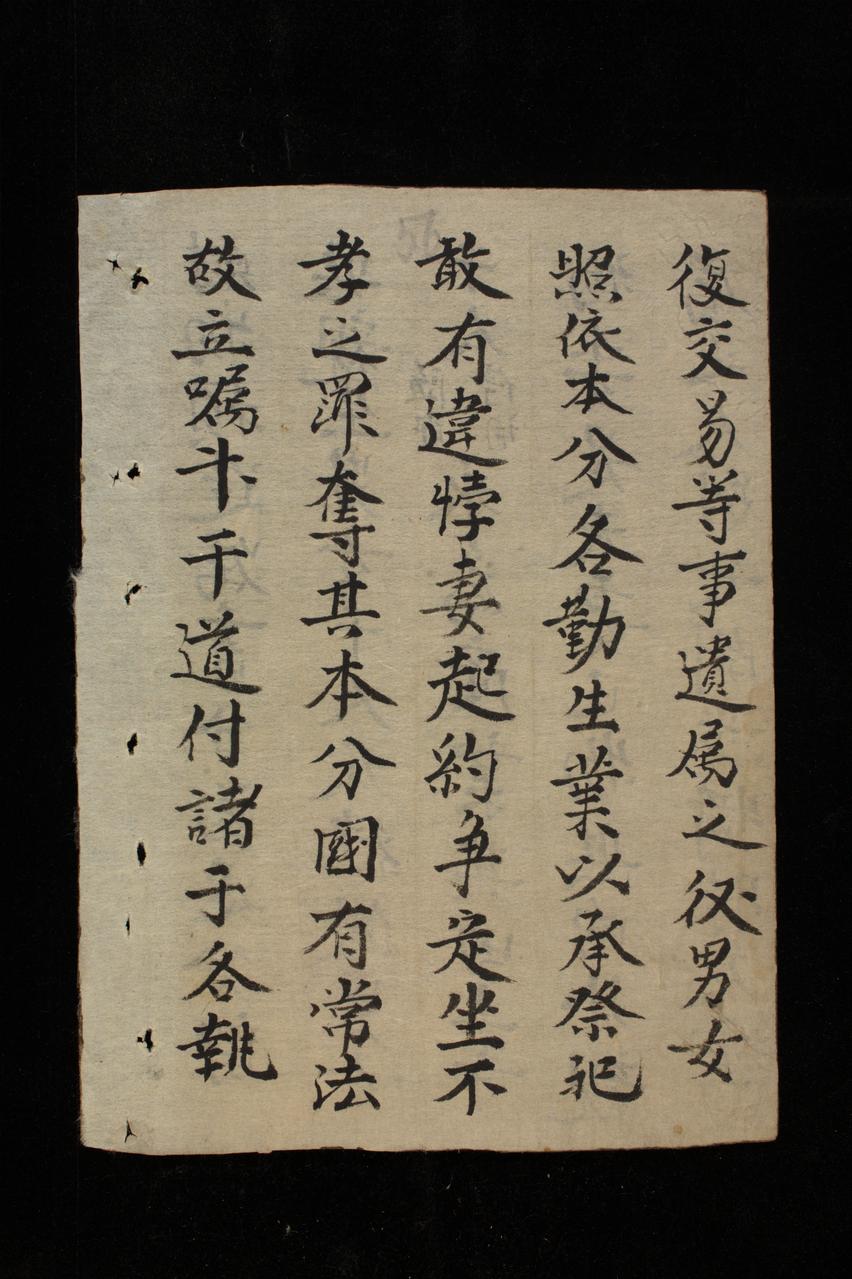 復交易等事遺属之後男女
照依本分各勤生業以承祭祀
敢有違悖妻起約争定坐不
孝之罪奪其本分國有常法
故立嘱𠦳干道付諸子各執